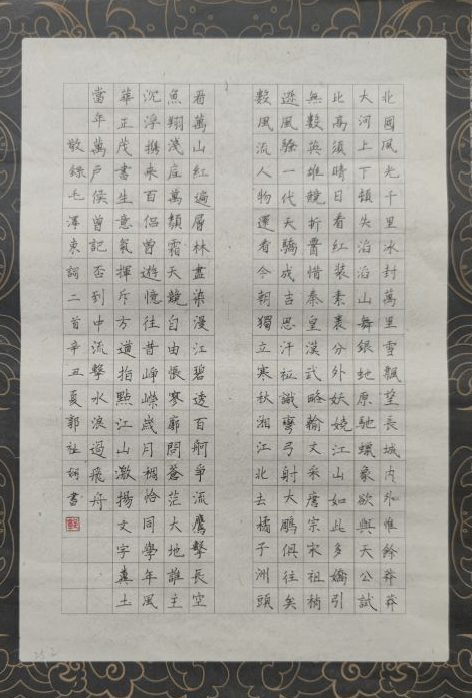 北國風光千里冰封萬里雪飄望長城内外惟餘莽莽
大河上下頓失滔滔山舞銀蛇原馳蠟象欲與天公試
比高須晴日看紅裝素裹分外妖嬈江山如此多嬌引
無數英雄競折腰惜秦皇漢武略輸文采唐宗宋祖稍
遜風騷一代天驕成吉思汗祗識彎弓射大鵰俱往矣
數風流人物還看今朝獨立寒秋湘江北去橘子洲頭
看萬山紅遍層林盡染漫江碧透百舸爭流鷹擊長空
魚翔淺底萬類霜天競自由悵寥廓問蒼茫大地誰主
沉浮携來百侶曾遊憶往昔崢嶸歲月稠恰同學年風
華正茂書生意氣揮斥方遒指點江山激揚文字糞土
當年萬户侯曾記否到中流擊水浪遏飛舟
敬録毛澤東詞二首辛丑夏郭祉書